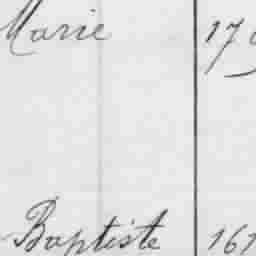 Marie 17
Baptiste 161